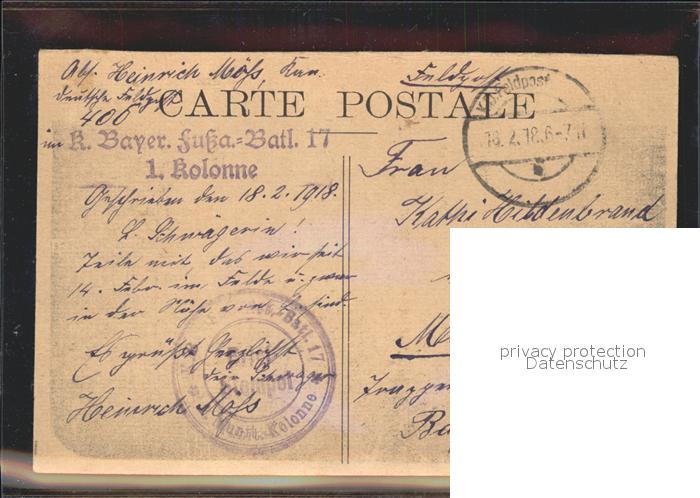 Abs. Heinrich Möss, Kan.
Deutsche Feldpost
406
Feldpost
CARTE POSTALE
K.D. Feldpost
18.2.18. 6-7 N
im K. Bayer. Fußa.-Batl. 17
1. Kolonne
Geschrieben den 18.2.1918.
L. Schwägerin!
Teile mit, das wir seit
14. Febr. im Felde u. zwar
in der Nähe von sind.
Es grüßt Herzlichst
dein Schwager
Heinrich Möss
Batl. 17
Munit.-Kolonne
Frau
Kathi Hildenbrand
M
Truppen
Ba
privacy protection
Datenschutz